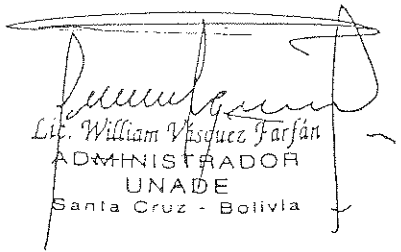 Lic. William Vásquez Farfán
ADMINISTRADOR
UNADE
Santa Cruz - Bolivia